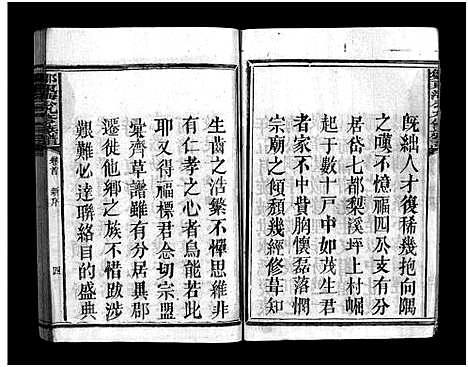 既絀人才復稀幾抱向隅
之嘆不憶福四公支有分
居岱七都梨溪坪上村崛
起于數十戸中如茂生君
者家不中貲懷磊落憫
宗廟之傾頽幾經修葺知
生齒之浩繁不憚思維非
有仁孝之心者烏能若此
耶又得福標君念切宗盟
彙齊草譜雖有分居異郡
遷徙他鄉之族不惜跋涉
艱難必達聯絡目的盛典
卷首 新序 四